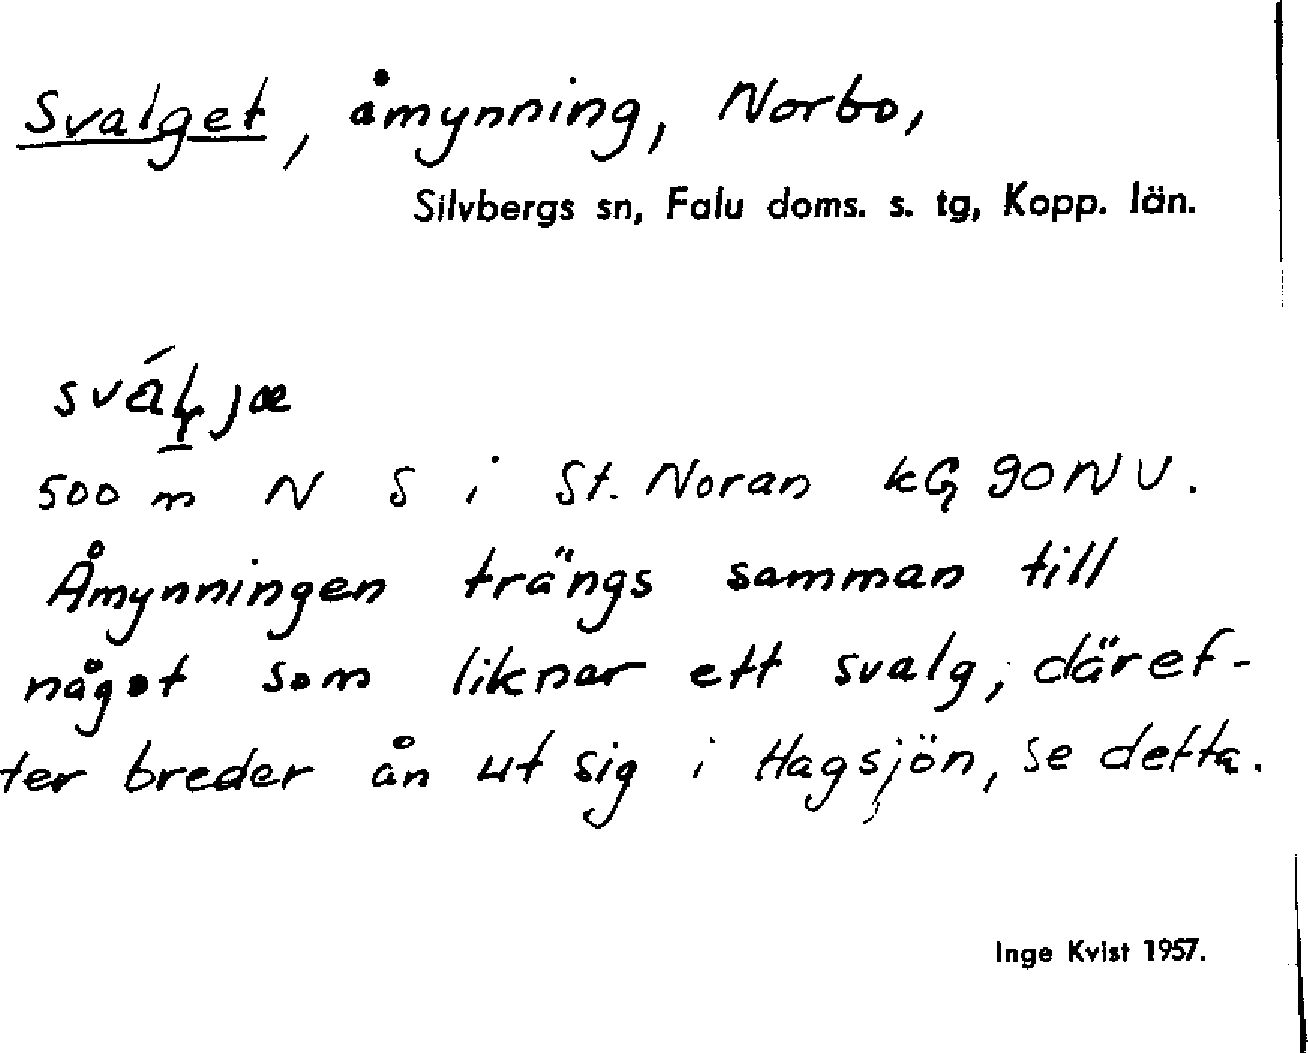 Svalget, åmynning, Norbo,
Silvbergs sn, Falu doms. s. tg, Kopp. län.
500 m N S i St. Noran kG 90 NV.
Åmynningen trängs samman till
något som liknar ett svalg, däref-
ter breder ån ut sig i Hagsjön, se detta.
Inge Kvist 1957.